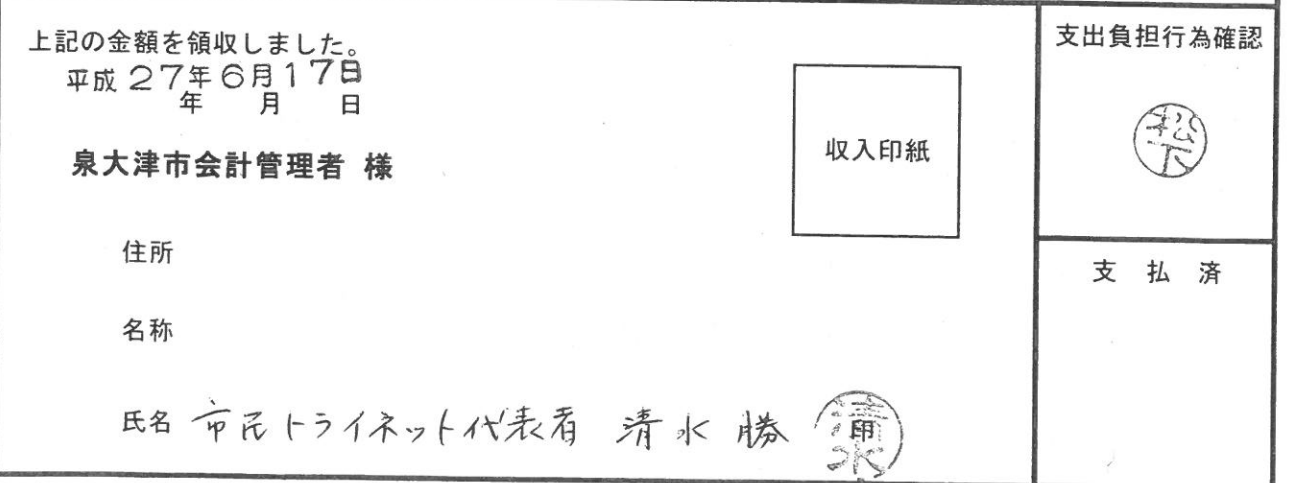 上記の金額を領収しました。
平成27年6月17日
年 月 日
泉大津市会計管理者 様
住所
名称
氏名 市民トライネット代表者 清水 勝 印
清水
収入印紙
支出負担行為確認
松下
支 払 済